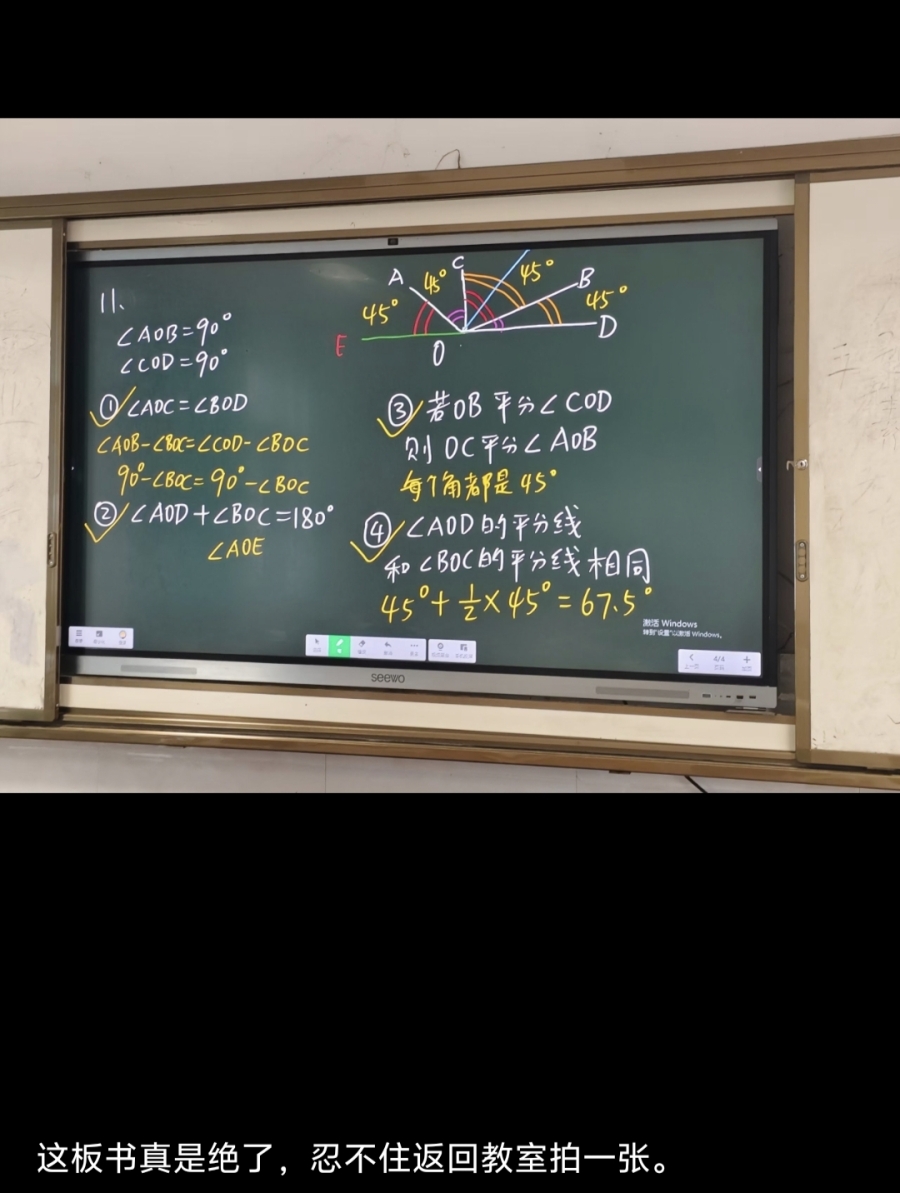 11、
∠AOB=90°
∠COD=90°
① ∠AOC=∠BOD
∠AOB-∠BOC=∠COD-∠BOC
90°-∠BOC=90°-∠BOC
② ∠AOD+∠BOC=180°
∠AOE
A 45° C 45° B
45° 45°
E O D
③ 若OB平分∠COD
则OC平分∠AOB
每个角都是45°
④ ∠AOD的平分线
和∠BOC的平分线相同
45°+½×45°=67.5°
激活 Windows
转到"设置"以激活 Windows。
4/4
seewo
这板书真是绝了，忍不住返回教室拍一张。